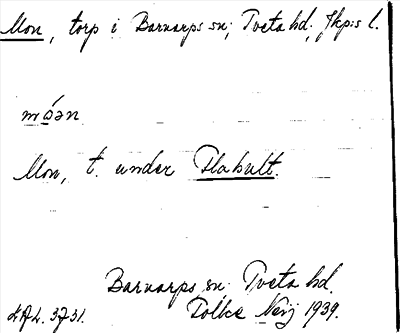 Mon, torp i Barnarps sn; Tveta hd, Jkp:s l.
móən
Mon, t. under Flahult.
Barnarps sn Tveta hd.
Folke Neij 1939.